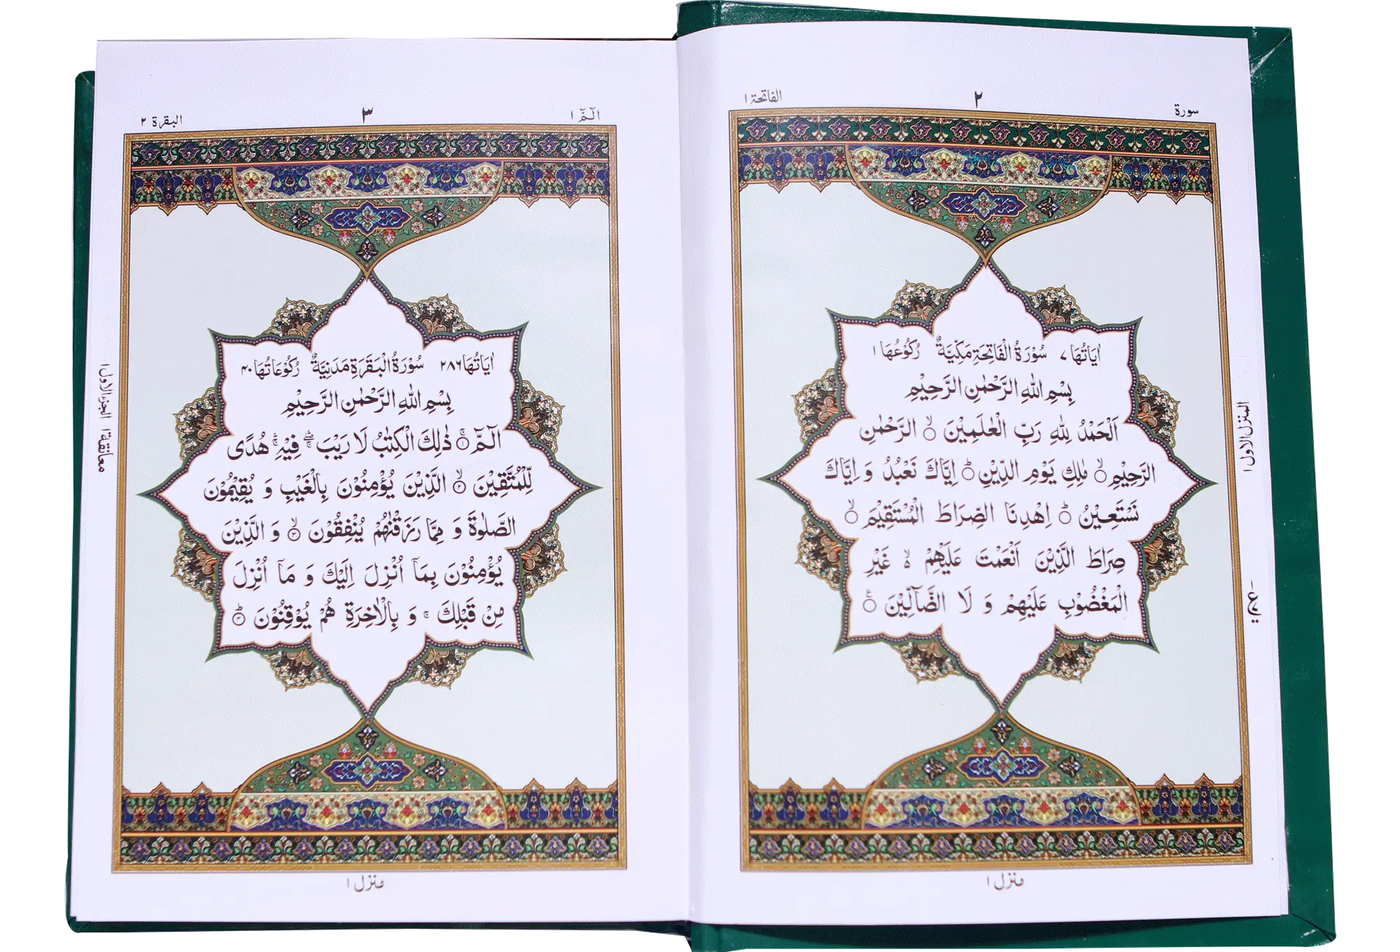 سورة
٢
الفاتحة ١
اٰيَاتُهَا ٧ سُوْرَةُ الْفَاتِحَةِ مَكِّيَّةٌ رُكُوْعُهَا ١
بِسْمِ اللّٰهِ الرَّحْمٰنِ الرَّحِيْمِ
اَلْحَمْدُ لِلّٰهِ رَبِّ الْعٰلَمِيْنَ ۙ الرَّحْمٰنِ
الرَّحِيْمِ ۙ مٰلِكِ يَوْمِ الدِّيْنِ ؕ اِيَّاكَ نَعْبُدُ وَ اِيَّاكَ
نَسْتَعِيْنُ ؕ اِهْدِنَا الصِّرَاطَ الْمُسْتَقِيْمَ ۙ
صِرَاطَ الَّذِيْنَ اَنْعَمْتَ عَلَيْهِمْ ۙ غَيْرِ
الْمَغْضُوْبِ عَلَيْهِمْ وَ لَا الضَّآلِّيْنَ
المنزل الاول ١
منزل ١
الٓمّٓ ١
٣
البقرة ٢
اٰيَاتُهَا ٢٨٦ سُوْرَةُ الْبَقَرَةِ مَدَنِيَّةٌ رُكُوْعَاتُهَا ٤٠
بِسْمِ اللّٰهِ الرَّحْمٰنِ الرَّحِيْمِ
الٓمّٓ ۚ ذٰلِكَ الْكِتٰبُ لَا رَيْبَ ۛۖ فِيْهِ ۛۚ هُدًى
لِّلْمُتَّقِيْنَ ۙ الَّذِيْنَ يُؤْمِنُوْنَ بِالْغَيْبِ وَ يُقِيْمُوْنَ
الصَّلٰوةَ وَ مِمَّا رَزَقْنٰهُمْ يُنْفِقُوْنَ ۙ وَ الَّذِيْنَ
يُؤْمِنُوْنَ بِمَآ اُنْزِلَ اِلَيْكَ وَ مَآ اُنْزِلَ
مِنْ قَبْلِكَ ۚ وَ بِالْاٰخِرَةِ هُمْ يُوْقِنُوْنَ ؕ
معانقة ١ الجزء الاول ١
منزل ١